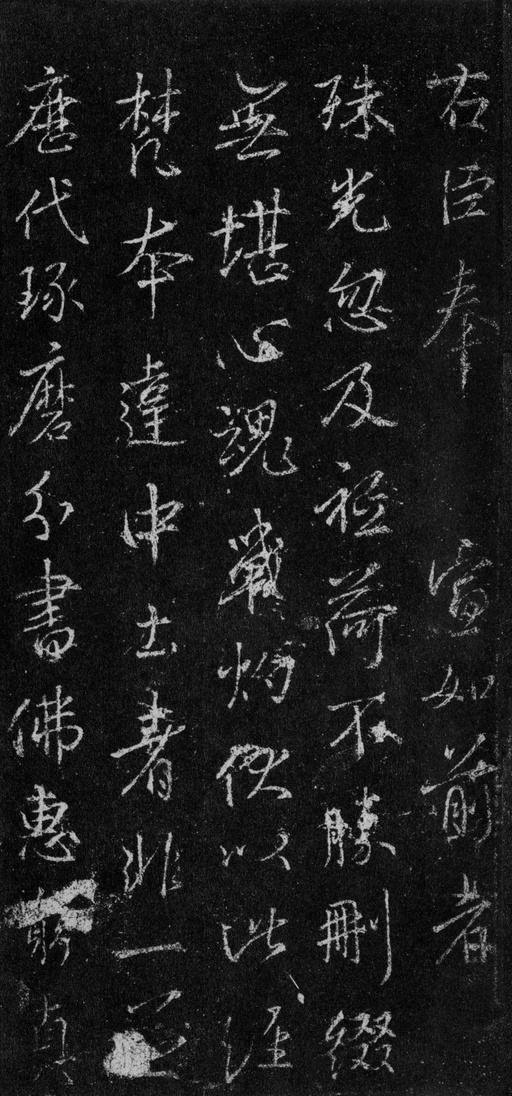 右臣奉宣如前者
殊光忽及祗荷不勝刪綴
無堪心魂戰灼伏以此經
梵本違中土者非一
歷代琢磨分書佛惠前貞